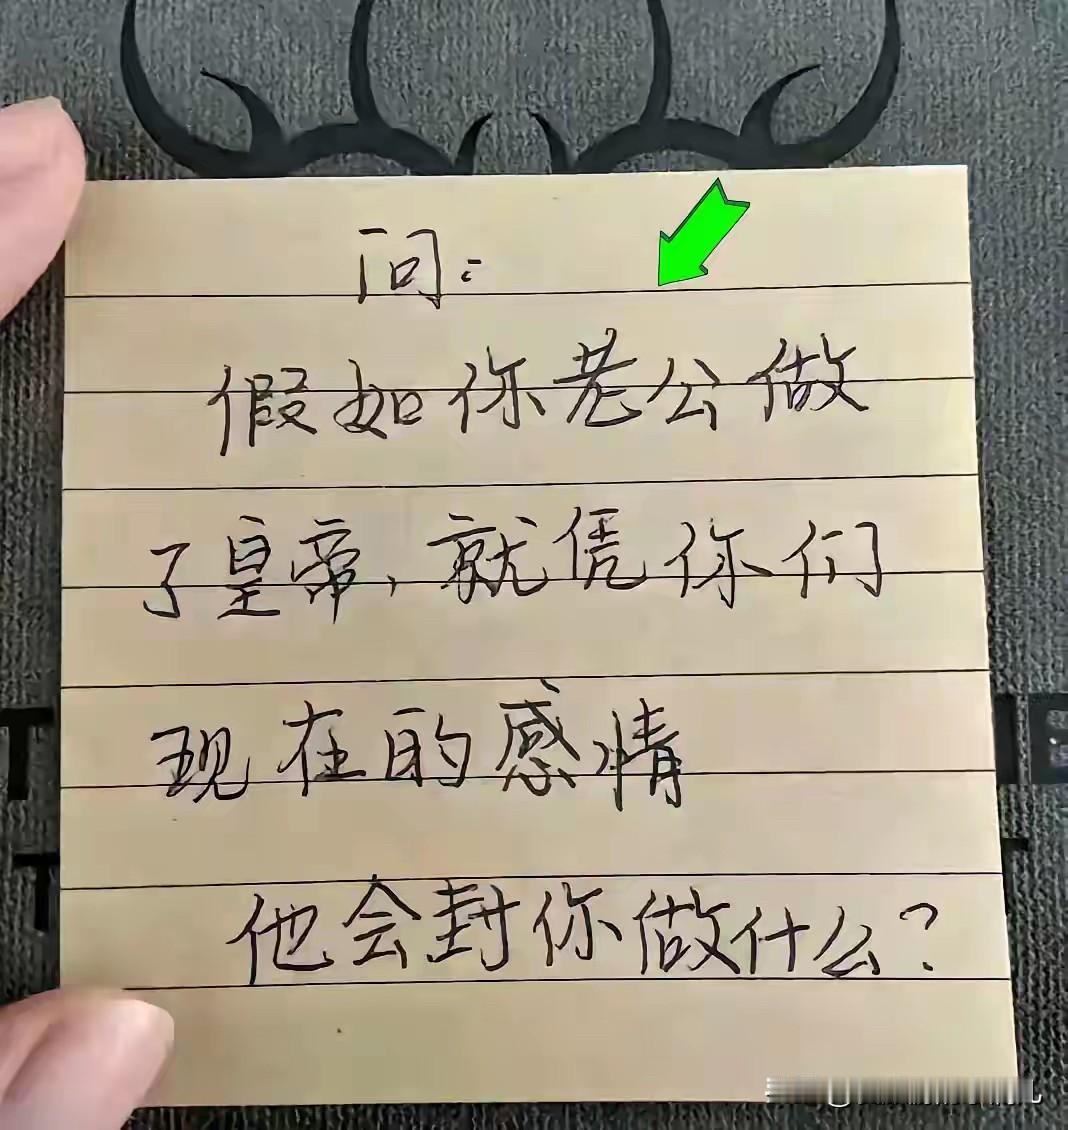 问：
假如你老公做
了皇帝，就凭你们
现在的感情
他会封你做什么？